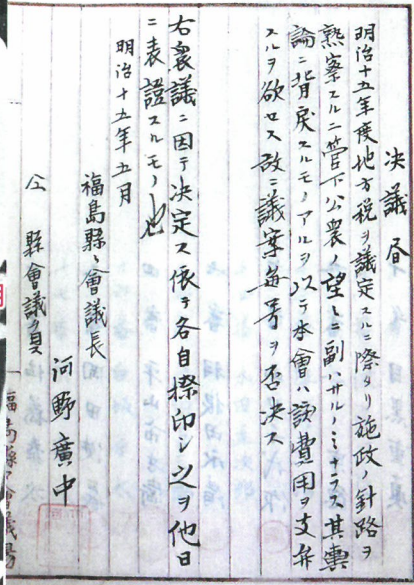 決議書
明治十五年度地方税ヲ議定スルニ際タリ施政ノ針路ヲ
熟察スルニ管下公衆ノ望ミニ副ハサルノミナラス其輿
論ニ背戻スルモノアルヲ以テ本會ハ該費用ヲ支弁
スルヲ欲セス故ニ議案毎号ヲ否決ス
右衆議ニ因テ決定ス依テ各自捺印シ之ヲ他日
ニ表證スルモノ也
明治十五年五月
福島縣々會議長
河野廣中
仝 縣會議員
福島縣々會議場